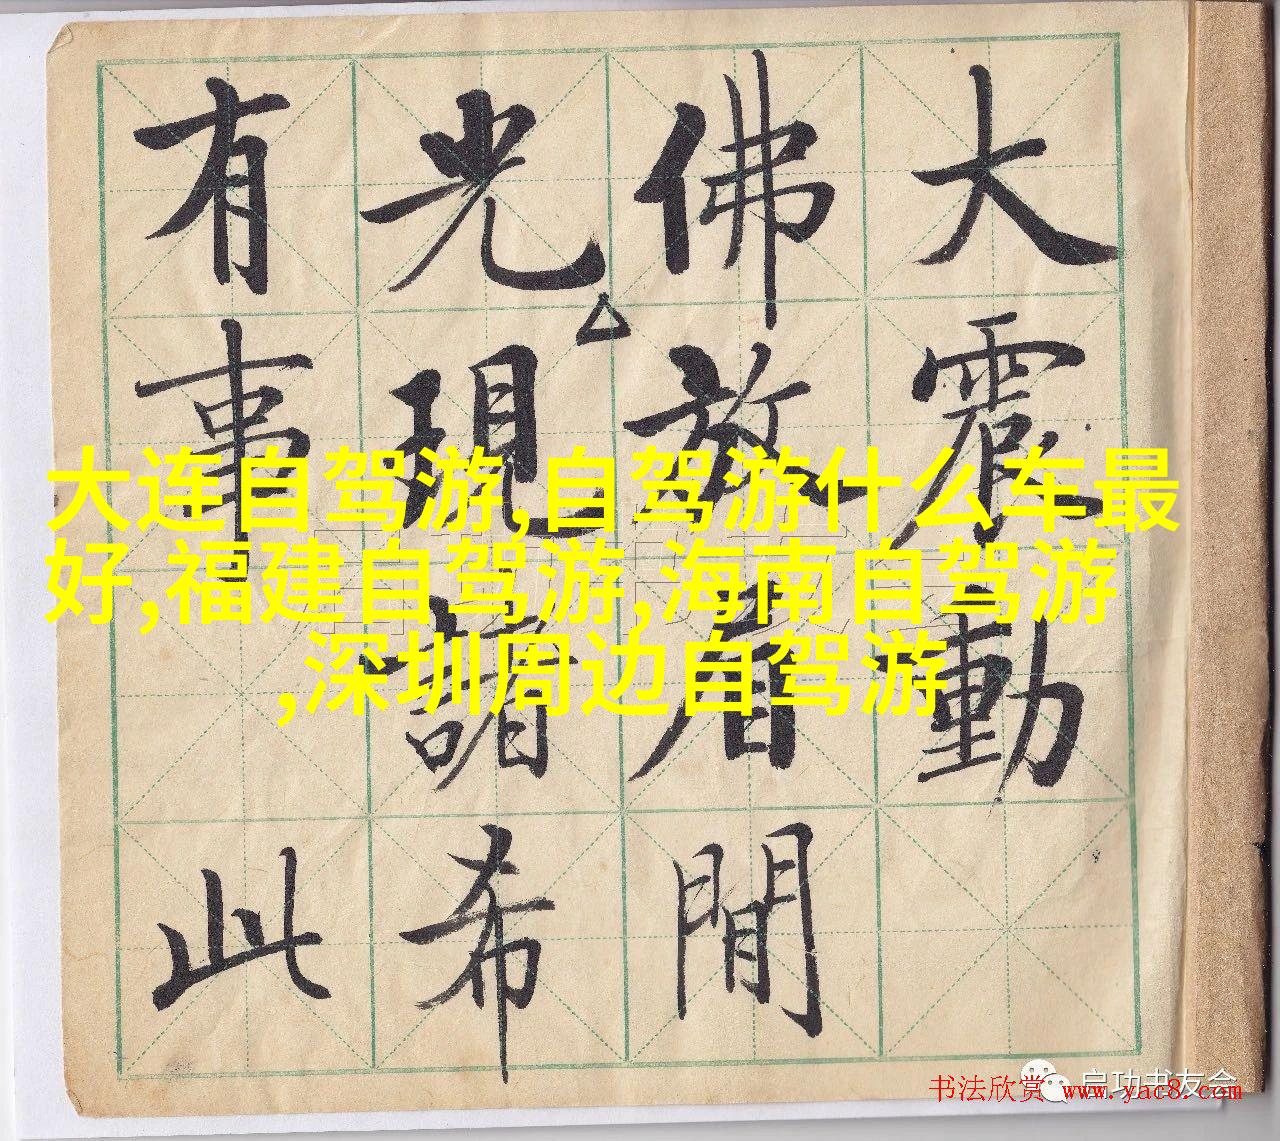 大震動
佛放眉間
光現諸希
有事 此
大连自驾游,自驾游什么车最
好,福建自驾游,海南自驾游
,深圳周边自驾游
启功书友会
书法欣赏 www.yac8.com